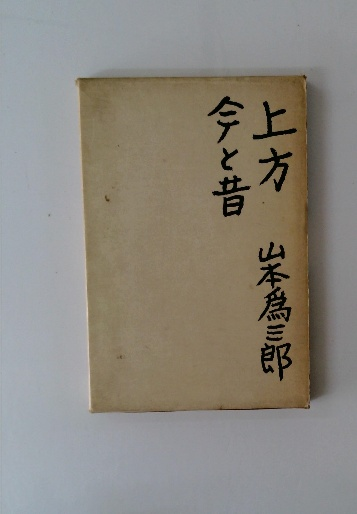 上方
今と昔
山本為三郎